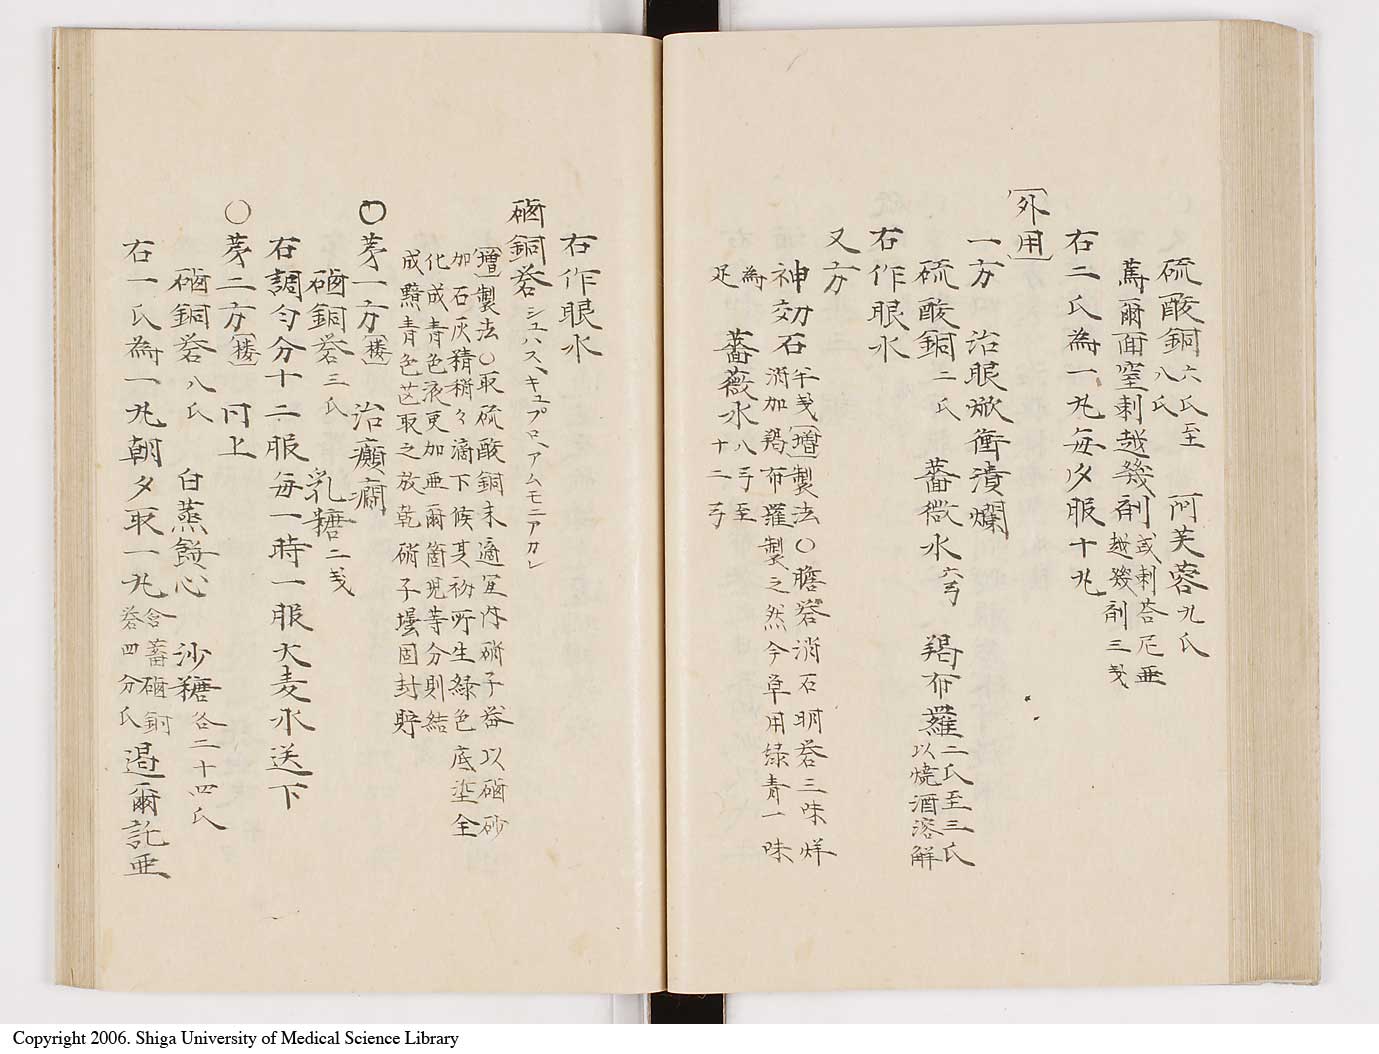 硫酸銅六氏至八氏 阿芙蓉九氏
蔫爾面窒刺越幾剤或刺荅尼亜越幾剤三戔
右二氏為一丸每夕服十丸
〔外用〕
一方 治眼焮衝潰爛
硫酸銅二氏 薔薇水六弓 羯布羅二氏至三氏以焼酒溶解
右作眼水
又方
神効石半戔〔増〕製法〇膽礬消石明礬三味烊
消加羯布羅製之然今卓用緑青一味
為足 薔薇水八弓至十二弓
右作眼水
硇銅礬シュハス、キュプロ、アムモニアカレ
〔増〕製法〇取硫酸銅末適宜内硝子器以硇砂
加石灰精稍々滴下候其初所生緑色底垽全
化成青色液更加亜爾箇児等分則結
成黯青色芒取之放乾硝子壜固封貯
〇第一方〔楼〕 治癲癇
硇銅礬三氏 乳糖二戔
右調匀分十二服每一時一服大麦水送下
〇第二方〔楼〕 同上
硇銅礬八氏 白蒸餅心 沙糖各二十四氏
右一氏為一丸朝夕取一丸含蓄硇銅礬四分氏 過爾託亜